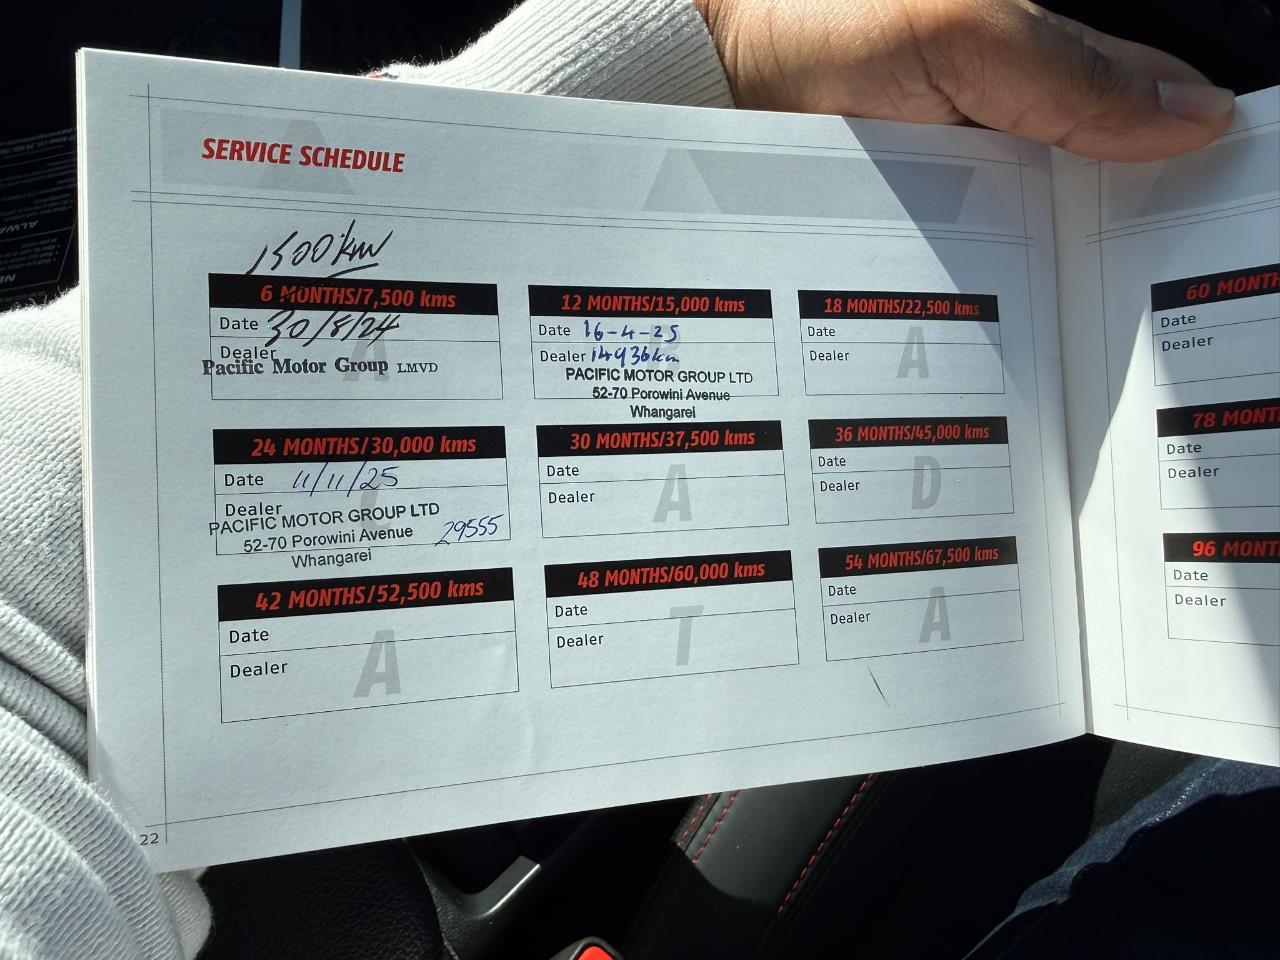 SERVICE SCHEDULE
1500 km
6 MONTHS/7,500 kms
Date 30/8/24
Dealer
A
Pacific Motor Group LMVD
12 MONTHS/15,000 kms
Date 16-4-25
Dealer 14936km
PACIFIC MOTOR GROUP LTD
52-70 Porowini Avenue
Whangarei
18 MONTHS/22,500 kms
Date
Dealer
A
24 MONTHS/30,000 kms
Date 11/11/25
Dealer
C
PACIFIC MOTOR GROUP LTD
52-70 Porowini Avenue
Whangarei
29555
30 MONTHS/37,500 kms
Date
Dealer
A
36 MONTHS/45,000 kms
Date
Dealer
D
42 MONTHS/52,500 kms
Date
Dealer
A
48 MONTHS/60,000 kms
Date
Dealer
T
54 MONTHS/67,500 kms
Date
Dealer
A
22
60 MONTH
Date
Dealer
78 MONT
Date
Dealer
96 MONT
Date
Dealer